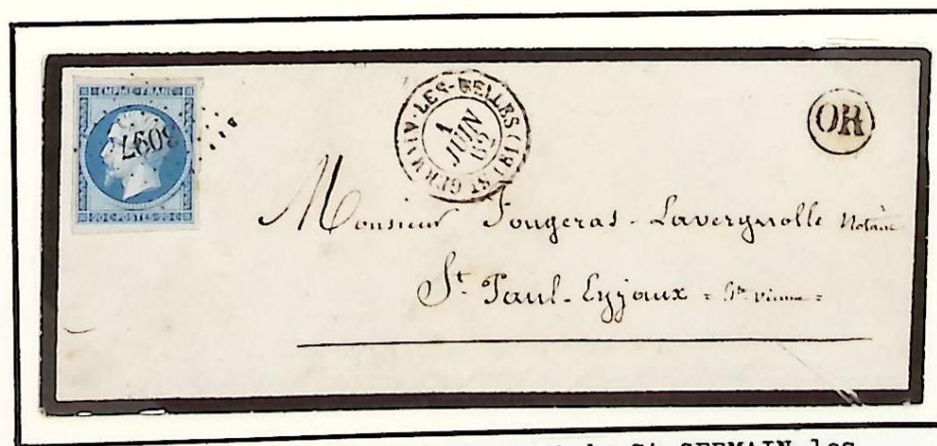 EMPIRE FRANC.
3097
20 C. POSTES 20 C.
ST GERMAIN-LES-BELLES (81)
1
JUIN
OR
Monsieur Fougeras-Lavergnolle Notaire
St. Paul-Eyjaux = Hte vienne =
St GERMAIN les